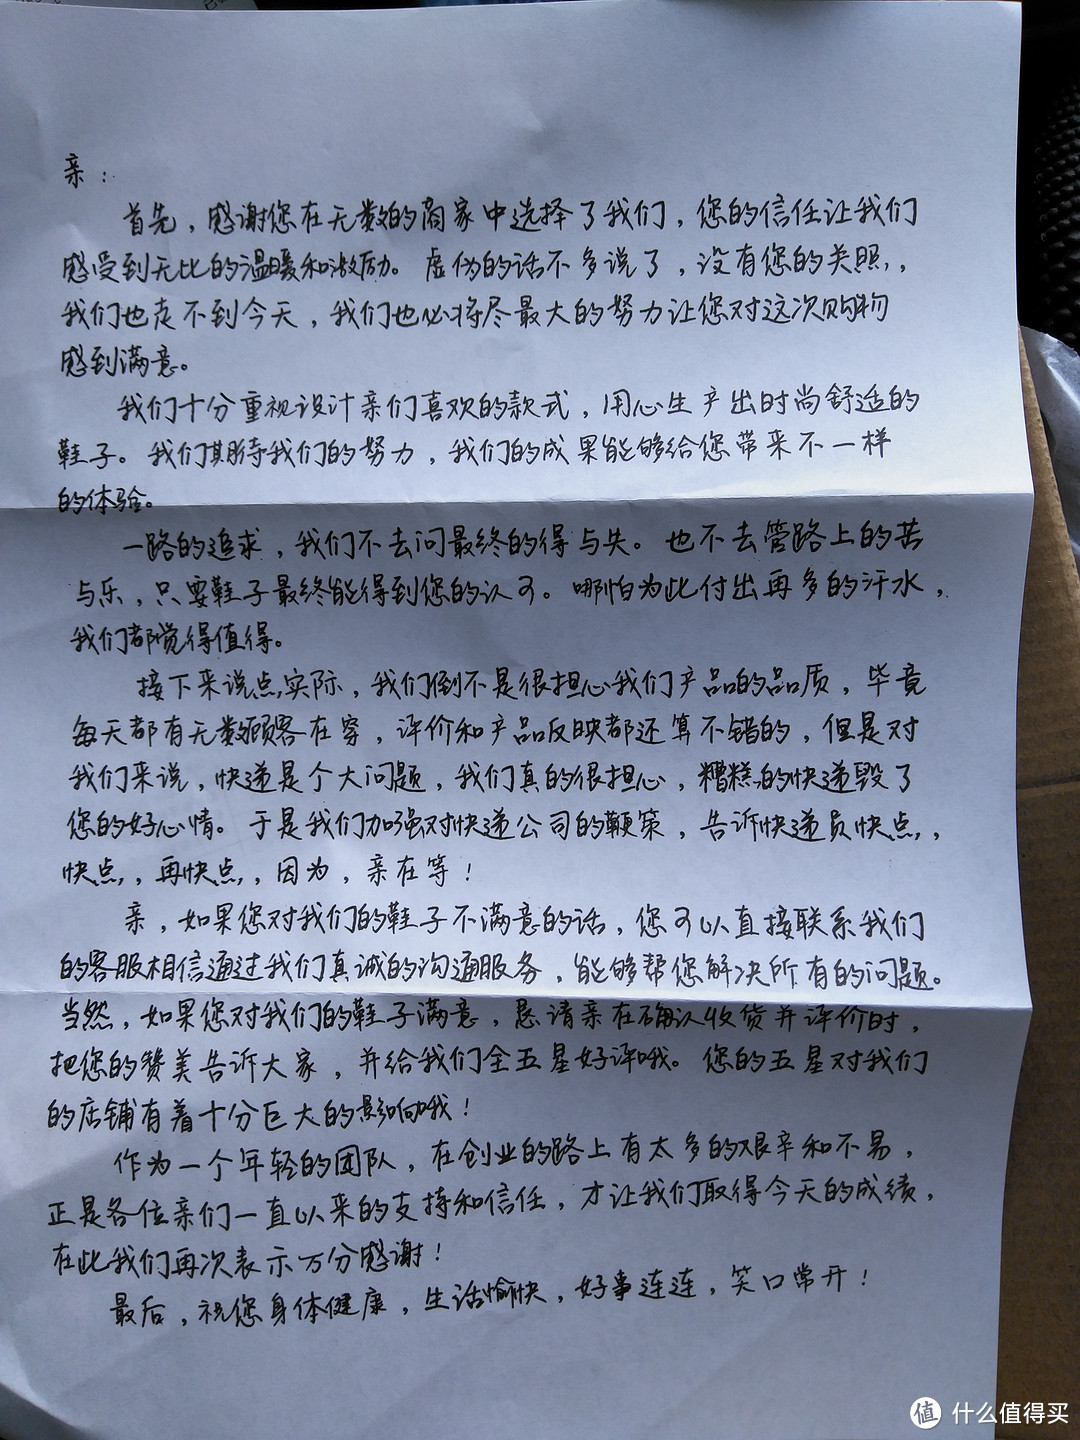 亲：
首先，感谢您在无数的商家中选择了我们，您的信任让我们
感受到无比的温暖和激励。虚伪的话不多说了，没有您的关照，
我们也走不到今天，我们也必将尽最大的努力让您对这次购物
感到满意。
我们十分重视设计亲们喜欢的款式，用心生产出时尚舒适的
鞋子。我们期待我们的努力，我们的成果能够给您带来不一样
的体验。
一路的追求，我们不去问最终的得与失。也不去管路上的苦
与乐，只要鞋子最终能得到您的认可。哪怕为此付出再多的汗水，
我们都觉得值得。
接下来说点实际，我们倒不是很担心我们产品的品质，毕竟
每天都有无数顾客在穿，评价和产品反映都还算不错的，但是对
我们来说，快递是个大问题，我们真的很担心，糟糕的快递毁了
您的好心情。于是我们加强对快递公司的鞭策，告诉快递员快点，
快点，再快点，因为，亲在等！
亲，如果您对我们的鞋子不满意的话，您可以直接联系我们
的客服相信通过我们真诚的沟通服务，能够帮您解决所有的问题。
当然，如果您对我们的鞋子满意，恳请亲在确认收货并评价时，
把您的赞美告诉大家，并给我们全五星好评哦。您的五星对我们
的店铺有着十分巨大的影响哦！
作为一个年轻的团队，在创业的路上有太多的艰辛和不易，
正是各位亲们一直以来的支持和信任，才让我们取得今天的成绩，
在此我们再次表示万分感谢！
最后，祝您身体健康，生活愉快，好事连连，笑口常开！
值 什么值得买